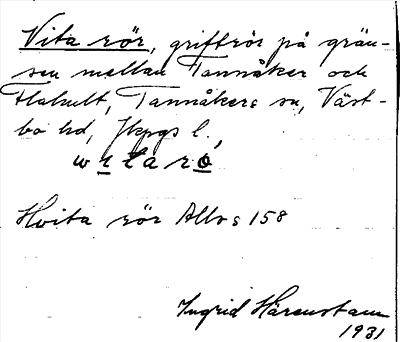 Vita rör, griftrör på grän-
sen mellan Tannåker och
Flahult, Tannåkers sn, Väst-
bo hd, Jkpgs l.
wɩtarö́
Hvita rör Allvs 158
Ingrid Härenstam
1931